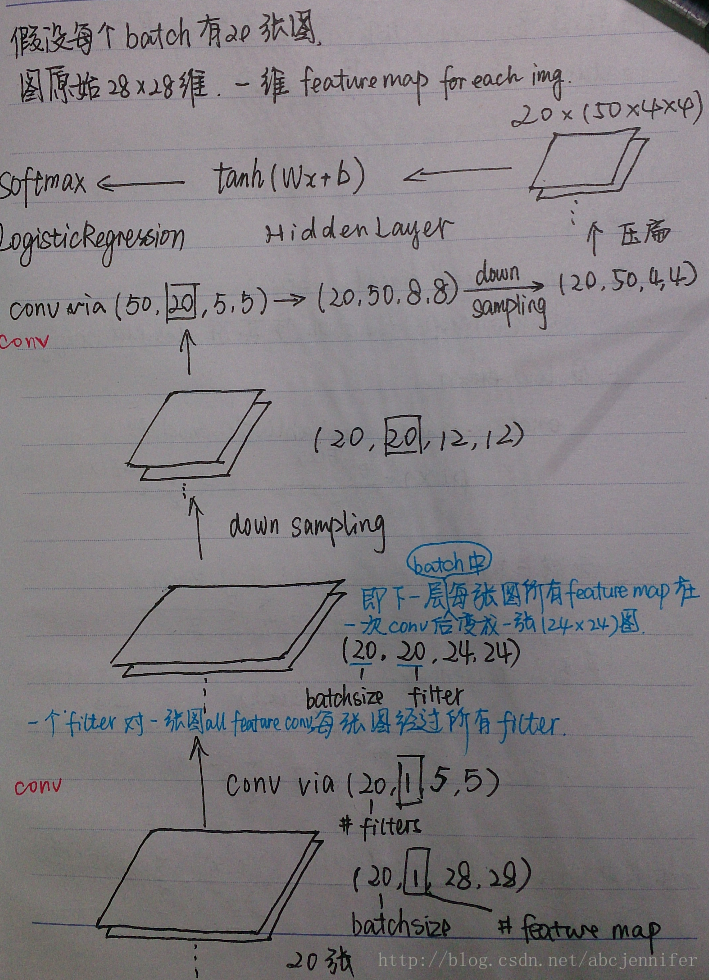 假设每个batch有20张图.
图原始28×28维. 一维 feature map for each img.
20×(50×4×4)
softmax ← tanh(Wx+b) ←
LogisticRegression Hidden Layer 个 压扁
conv via (50, 20, 5, 5) → (20, 50, 8, 8) down sampling → (20, 50, 4, 4)
conv
(20, 20, 12, 12)
down sampling
batch中
即下一层每张图所有feature map在
一次conv后变成一张(24×24)图.
(20, 20, 24, 24)
batchsize filter
一个filter对一张图all feature conv, 每张图经过所有filter.
conv
conv via (20, 1, 5, 5)
# filters
(20, 1, 28, 28)
batchsize # feature map
20张
http://blog.csdn.net/abcjennifer